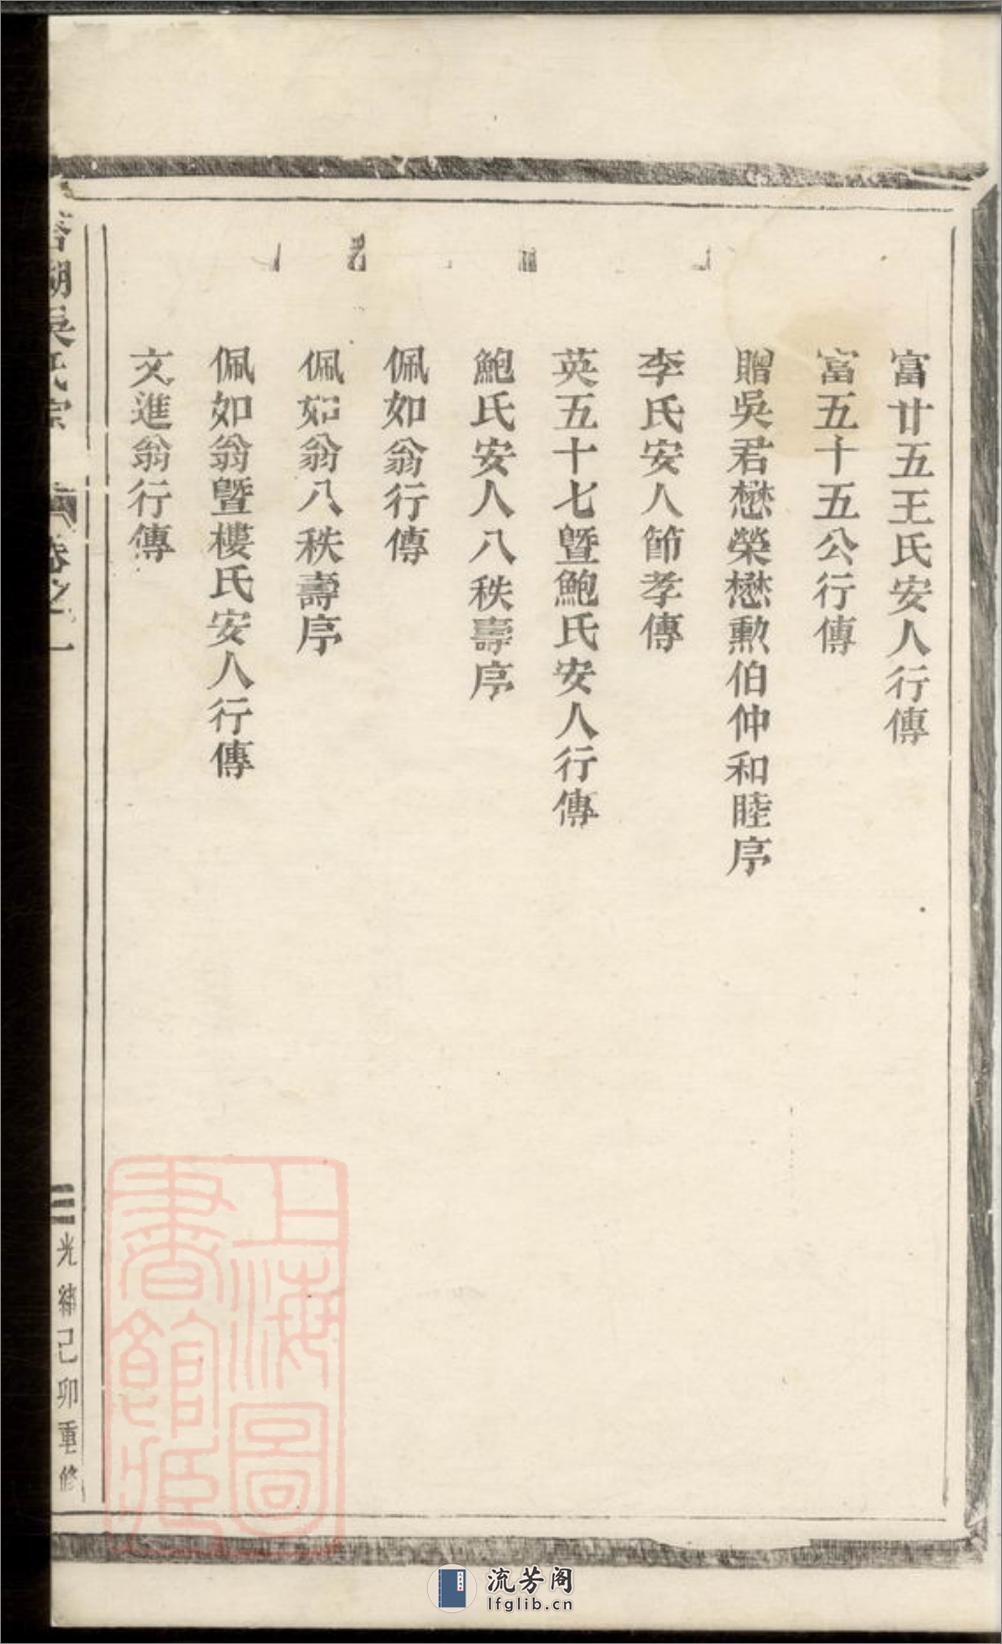 富廿五王氏安人行傳
富五十五公行傳
贈吳君懋榮懋勳伯仲和睦序
李氏安人節孝傳
英五十七暨鮑氏安人行傳
鮑氏安人八秩壽序
佩如翁行傳
佩如翁八秩壽序
佩如翁暨樓氏安人行傳
文進翁行傳
湖吳氏宗
卷之一
三
光緒己卯重修
上海圖書館藏
流芳阁
lfglib.cn